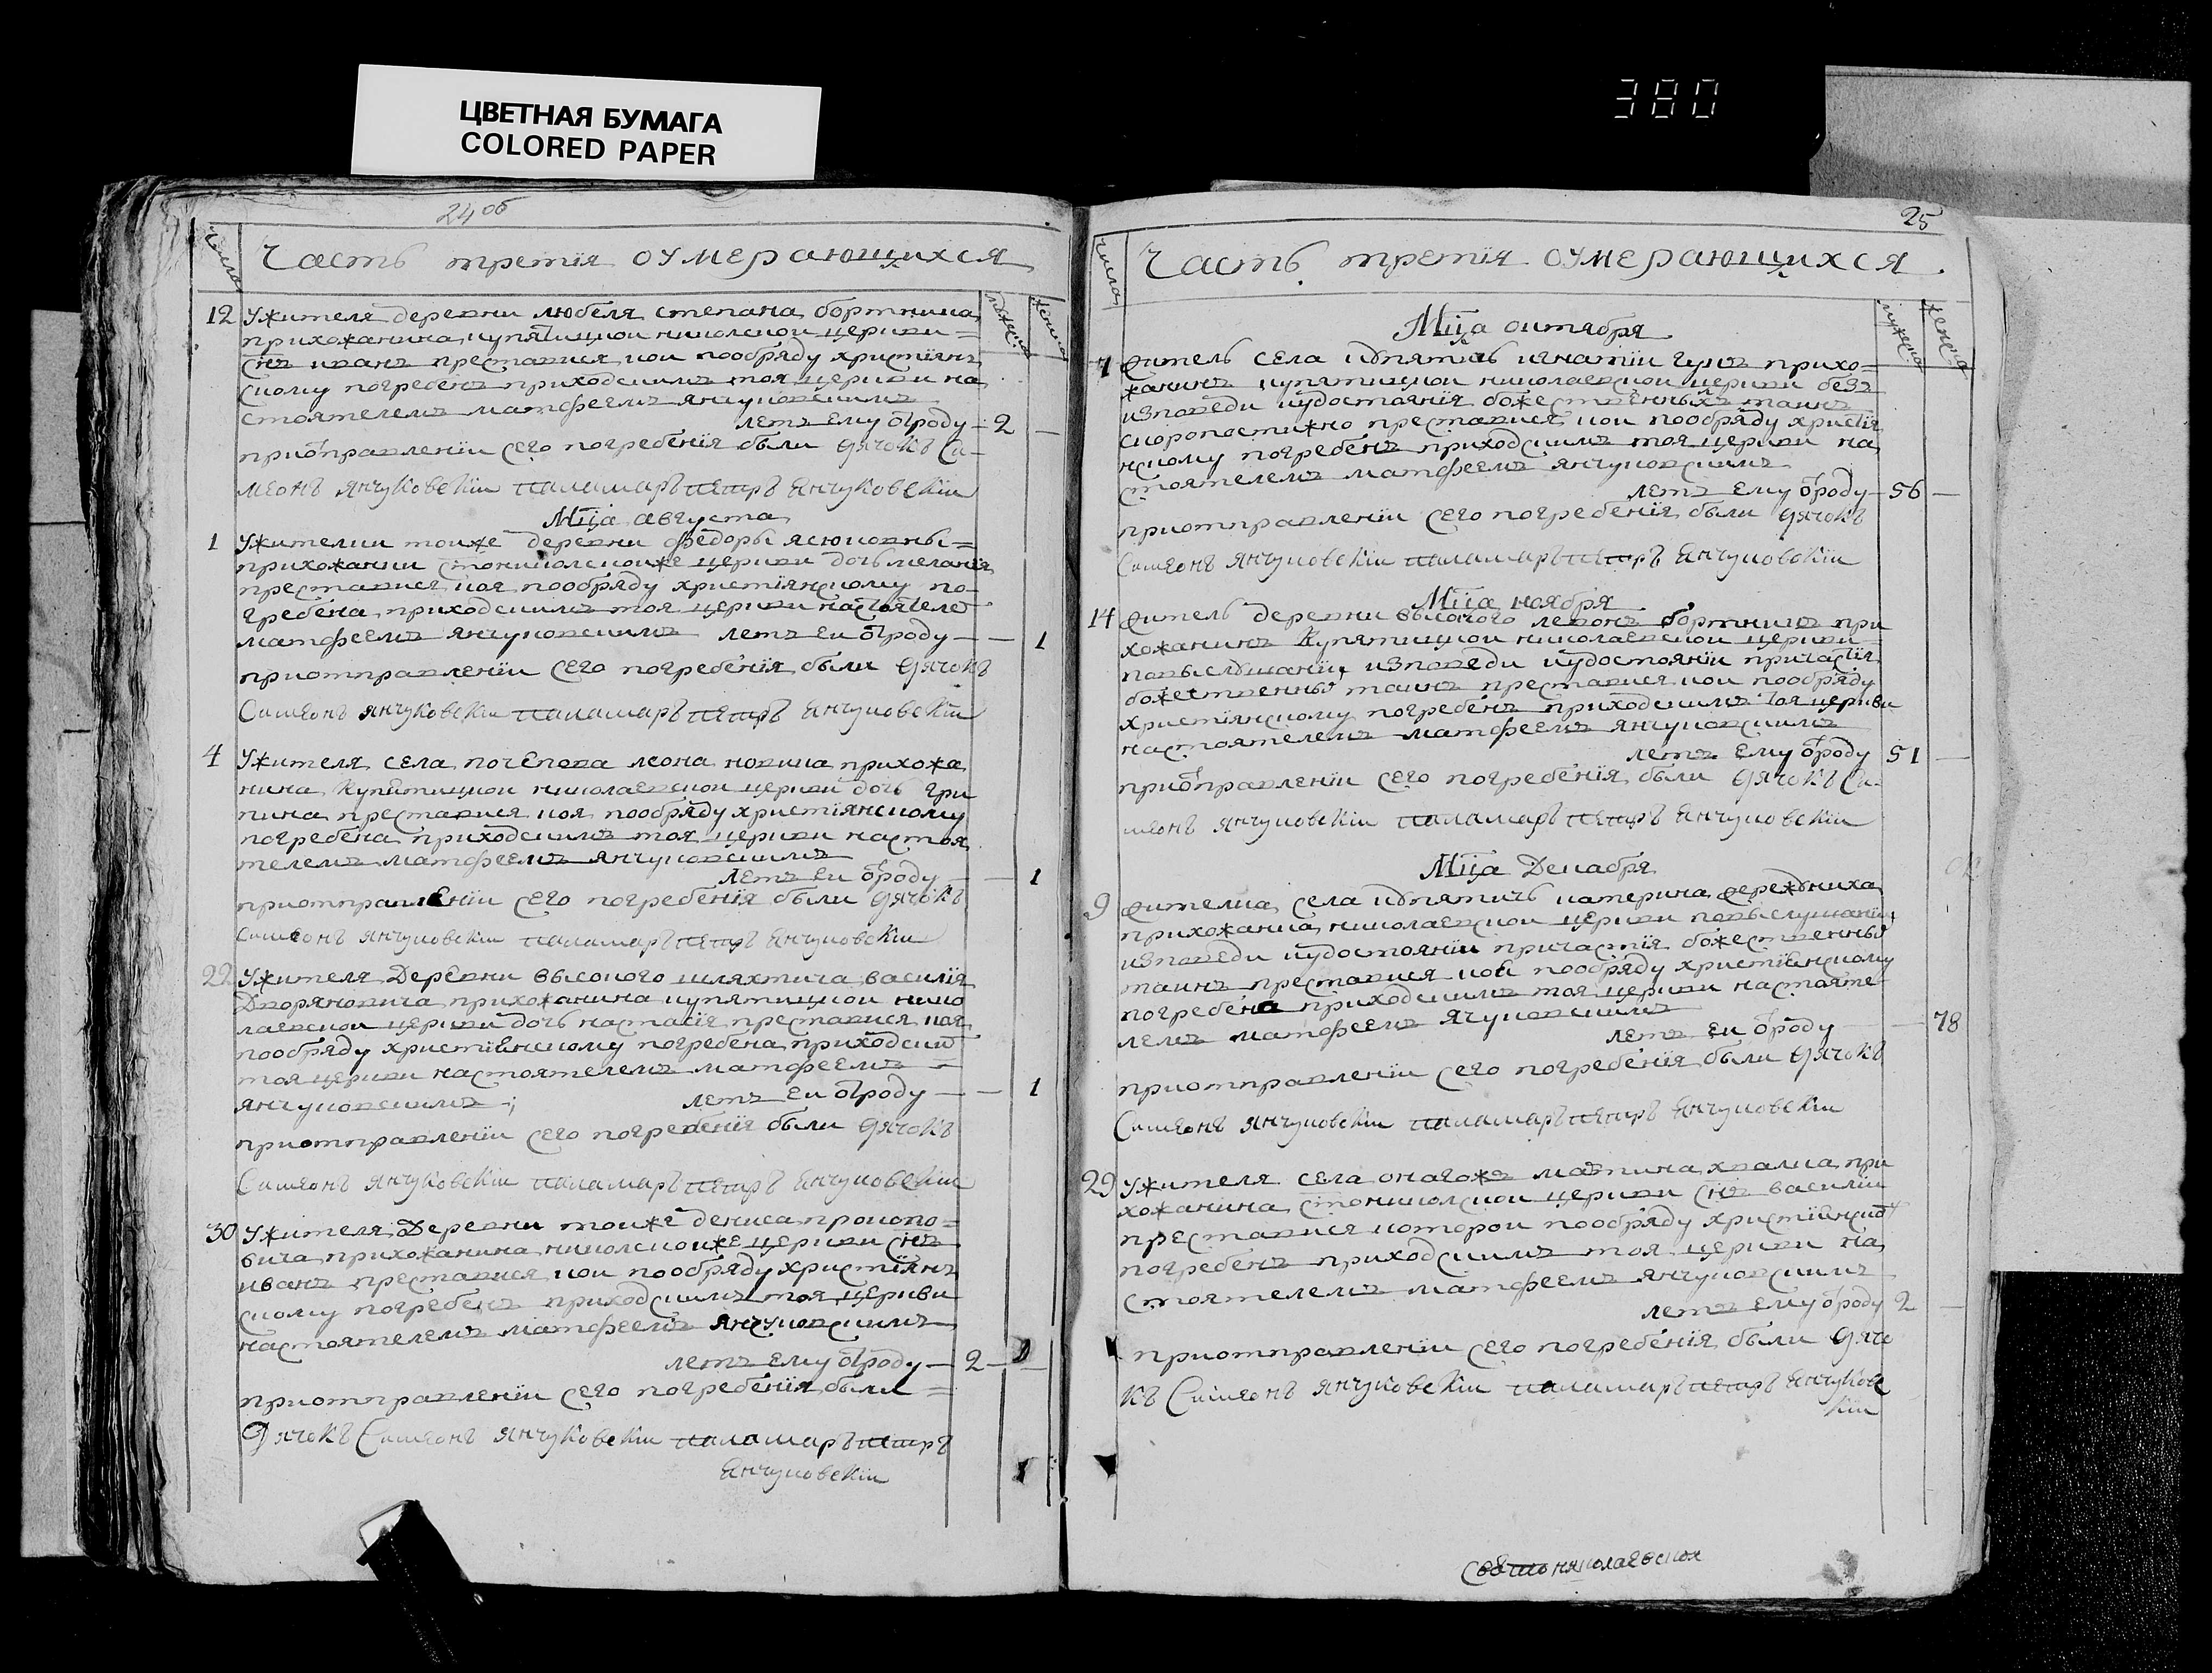 ЦВЕТНАЯ БУМАГА
COLORED PAPER
380
24 об
число
Часть третїя оумерающихся
мужеска
женска
12 Ужителя деревни любеля степана бортника
прихожанина купятицкои николскои церкви =
снъ иванъ преставися кои пообряду христїянъ
скому погребенъ приходскимъ тоя церкви на
стоятелемъ матфеемъ янчуковскимъ
летъ ему ѿроду — 2 —
приѿправленїи сего погребенїя были дячокъ Си-
меонъ янчуковскїи паламаръ петръ янчуковскїи
Мца августа
1 Ужителки тоиже деревни федоры ясюковны =
прихожанки стониколскоиже церкви дочь меланїя
преставися коя пообряду христїянскому по-
гребена приходскимъ тоя церкви настоятеле
матфеемъ янчуковскимъ летъ еи ѿроду — — 1
приотправленїи сего погребенїя были дячокъ
Симеонъ янчуковскїи паламаръ петръ янчуковскїи
4 Ужителя села почепова леона новика прихожа
нина купятицкои николаевскои церкви дочь гри
пина преставися коя пообряду христїянскому
погребена приходскимъ тоя церкви настоя
телемъ матфеемъ янчуковскимъ
летъ еи ѿроду — — 1
приотправленїи сего погребенїя были дячокъ
Симеонъ янчуковскїи паламаръ петръ янчуковскїи
22 Ужителя Деревни высокого шляхтича василїя
Дворяновича прихожанина купятицкои нико
лаевскои церкви дочь настасїя преставися коя
пообряду христїянскому погребена приходским
тоя церкви настоятелемъ матфеемъ =
янчуковскимъ ; летъ еи ѿроду — — 1
приотправленїи сего погребенїя были дячокъ
Симеонъ янчуковскїи паламаръ петръ янчуковскїи
30 Ужителя Деревни тоиже дениса прокопо =
вича прихожанина николскоиже церкви снъ
иванъ преставися кои пообряду христїянъ
скому погребенъ приходскимъ тоя церкви
настоятелемъ матфеемъ янчуковскимъ
летъ ему ѿроду — 2 —
приотправленїи сего погребенїя были =
Дячокъ Симеонъ янчуковскїи паламаръ петръ
янчуковскїи
25
число
Часть третїя оумерающихся
мужеска
женска
Мца октября
7 житель села купятичь игнатїи гукъ прихо =
жанинъ купятицкои николаевскои церкви безъ
изповеди иудостоянїя божественныхъ таинъ
скоропостижно преставися кои пообряду христїя
нскому погребенъ приходскимъ тоя церкви на
стоятелемъ матфеемъ янчуковскимъ
летъ ему ѿроду — 56 —
приотправленїи сего погребенїя были дячокъ
Симеонъ янчуковскїи паламаръ петръ янчуковскїи
Мца ноября
14 житель деревни высокого левонъ бортникъ при
хожанинъ купятицкои николаевскои церкви
повыслушанїи изповеди иудостоянїи причастїя
божественныхъ таинъ преставися кои пообряду
христїянскому погребенъ приходскимъ тоя церкви
настоятелемъ матфеемъ янчуковскимъ
летъ ему ѿроду 51 —
приѿправленїи сего погребенїя были дячокъ Си-
меонъ янчуковскїи паламаръ петръ янчуковскїи
Мца Декабря
9 жителка села купятичь катерина
прихожанка николаевскои церкви повыслушанїи
изповеди иудостоянїи причастїя божественныхъ
таинъ преставися коя пообряду христїянскому
погребена приходскимъ тоя церкви настояте-
лемъ матфеемъ ячуковскимъ
летъ еи ѿроду — 78
приотправленїи сего погребенїя были дячокъ
Симеонъ янчуковскїи паламаръ петръ янчуковскїи
29 Ужителя села оногожъ мартина при
хожанина стониколскои церкви снъ василїи
преставися которои пообряду христїянско
погребенъ приходскимъ тоя церкви на
стоятелемъ матфеемъ янчуковскимъ
летъ ему ѿроду 2 —
приотправленїи сего погребенїя были дячо
къ Симеонъ янчуковскїи паламаръ петръ янчуков
скїи